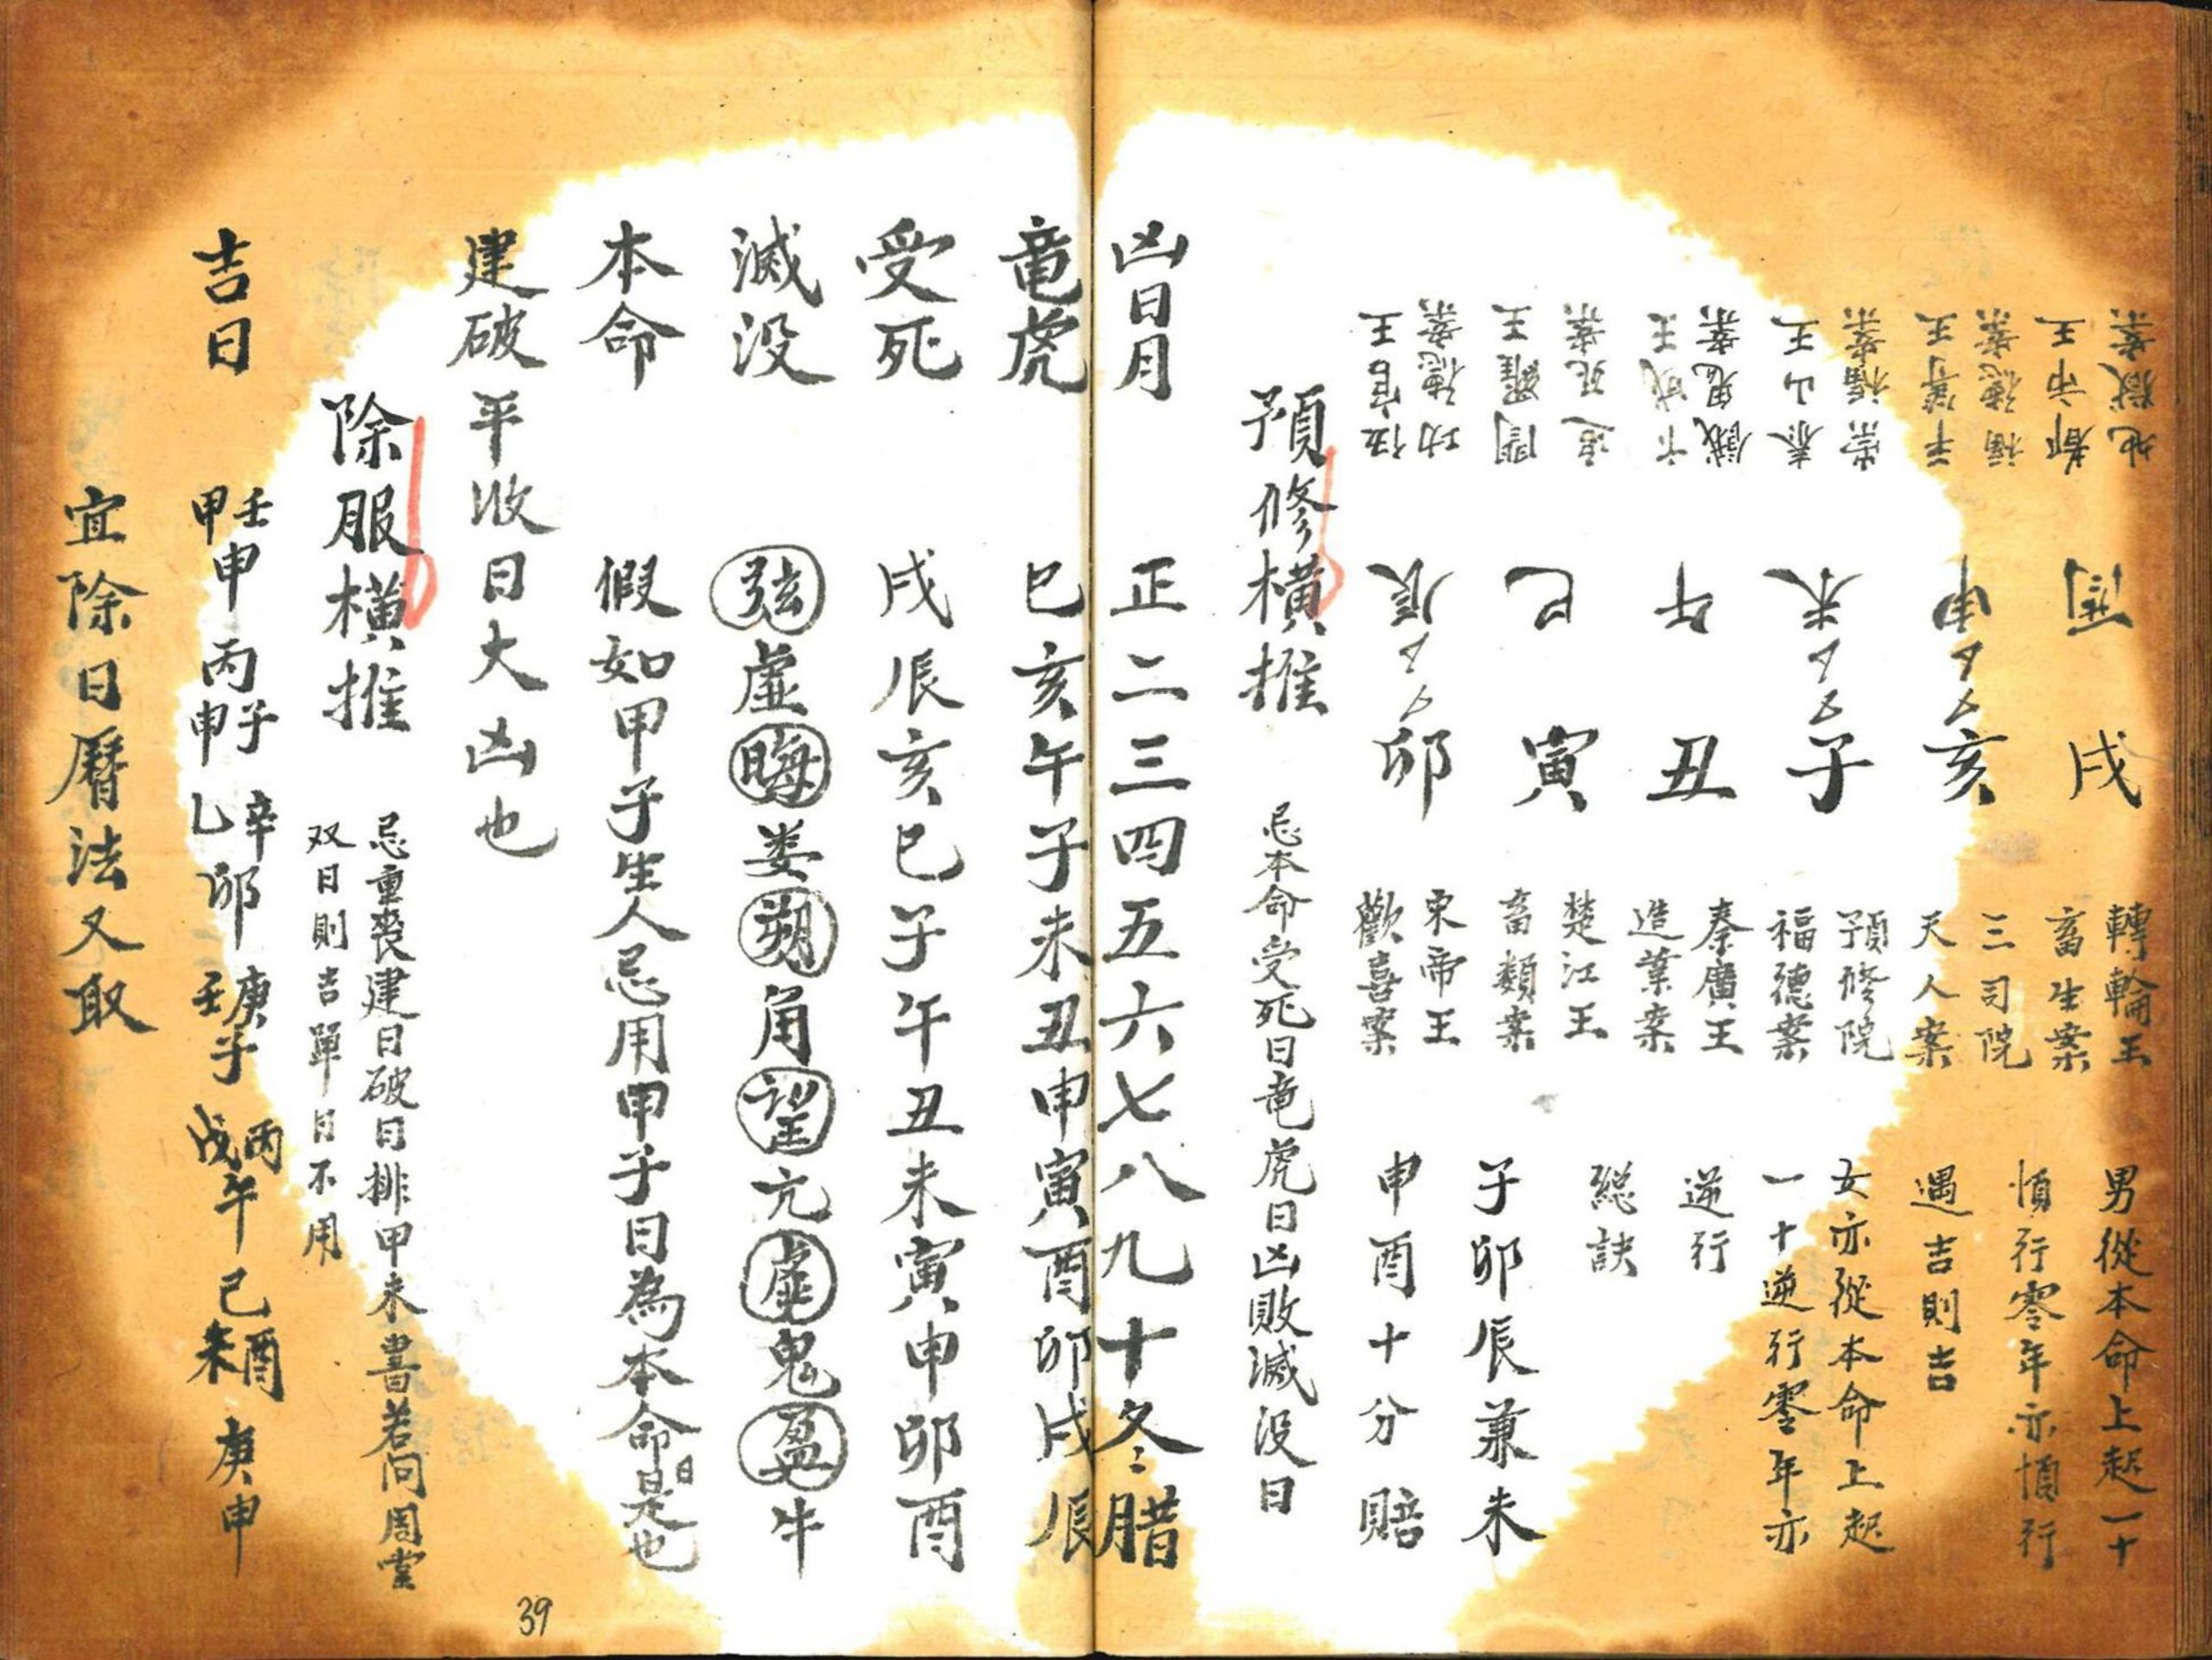 地獄案
都市王
福德案
平等王
崇福案
泰山王
餓鬼案
卞成王
追死案
閻羅王
功德案
伍官王
酉
申
未
午
巳
辰
戌
亥
子
丑
寅
卯
轉輪王
畜生案
三司院
天人案
預修院
福德案
秦廣王
造業案
楚江王
畜類案
宋帝王
歡喜案
男從本命上起一十
順行零年亦順行
遇吉則吉
女亦從本命上起
一十逆行零年亦
逆行
總訣
子卯辰兼未
申酉十分賠
預修橫推 忌本命受死日竜虎日凶敗滅没日
凶日月 正二三四五六七八九十冬腊
竜虎 巳亥午子未丑申寅酉卯戌辰
受死 戌辰亥巳子午丑未寅申卯酉
滅没 弦虛晦娄朔角望亢虛鬼盈牛
本命 假如甲子生人忌用甲子日為本命日是也
建破平收日大凶也
除服橫推 忌重喪建日破日排甲未書若问周堂
双日則吉單日不用
吉日 壬甲申 丙子申 辛乙卯 庚壬子 丙戊午 己酉未 庚申
宜除日曆法又取
39